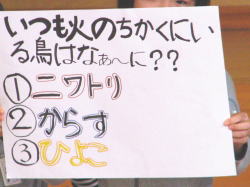 いつも火のちかくにい
る鳥はなぁ〜に??
①ニワトリ
②からす
③ひよこ